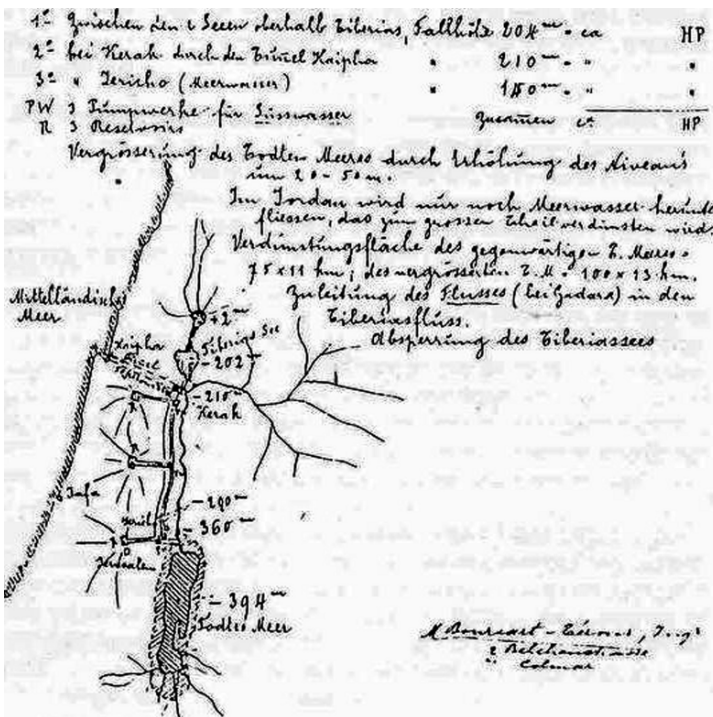 1º Zwischen den 2 Seen oberhalb Tiberias, Fallhöhe 204 m = ca HP
2º bei Kerak durch den Tunel Kaipha " 210 m = " "
3º " Jericho (Meerwasser) " 180 m = " "
PW 3 Pumpwerke für Süsswasser Zusamen ca HP
R 3 Reservoirs
Vergrösserung des Todten Meeres durch Erhöhung des Niveau's
um 20-50 m.
Im Jordan wird nur noch Meerwasser herunter
fliessen, das zum grossen Theil verdunsten wird.
Verdunstungsfläche des gegenwärtigen T. Meeres =
75 x 11 km; des vergrösserten T. M = 100 x 13 km.
Zuleitung des Flusses (bei Gadara) in den
Tiberiasfluss.
Absperrung des Tiberiassees
Mittelländisches
Meer
+2 m
Tiberias See
- 202 m
Kaipha
Tunel
- 210 m
Kerak
Jafa
- 290 m
- 360 m
Jericho
Jerusalem
- 394 m
Todtes Meer
M Bourcart
Belchenstrasse
Colmar